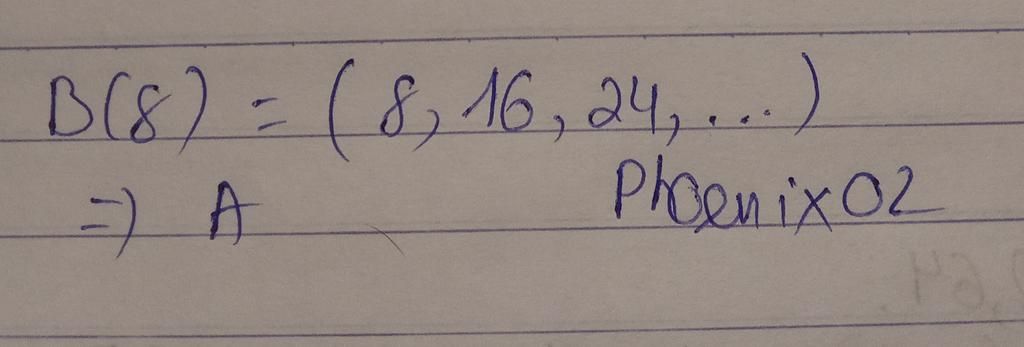 B(8) = ( 8, 16, 24, ... )
=) A PhoenixO2